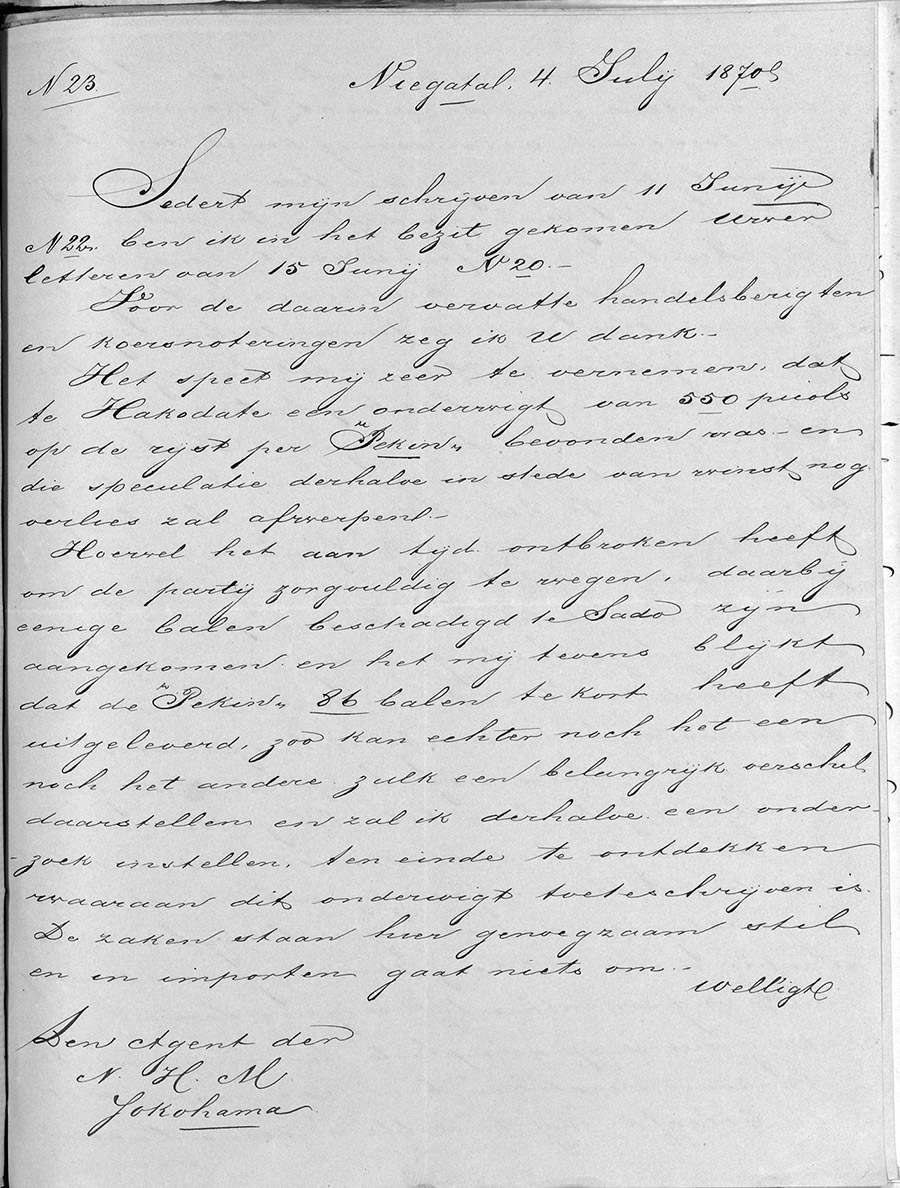 N 23.
Niegata, 4 July 1870
Sedert mijn schrijven van 11 Junij
N 22. ben ik in het bezit gekomen Uwer
letteren van 15 Junij N 20.-
Voor de daarin vervatte handelsberigten
en koersnoteringen zeg ik U dank.-
Het speet mij zeer te vernemen, dat
te Hakodate een onderwigt van 550 picols
op de rijst per "Pekin" bevonden was en
die speculatie derhalve in stede van winst nog
verlies zal afwerpen.-
Hoewel het aan tijd ontbroken heeft
om de partij zorgvuldig te wegen, daarbij
eenige balen beschadigd te Sado zijn
aangekomen en het mij tevens blijkt
dat de "Pekin" 86 balen te kort heeft
uitgeleverd, zoo kan echter noch het een
noch het andere zulk een belangrijk verschil
daarstellen en zal ik derhalve een onder-
zoek instellen, ten einde te ontdekken
waaraan dit onderwigt toeteschrijven is.
De zaken staan hier genoegzaam stil
en in importen gaat niets om.-
Welligt
Den Agent der
N. H. M.
Yokohama